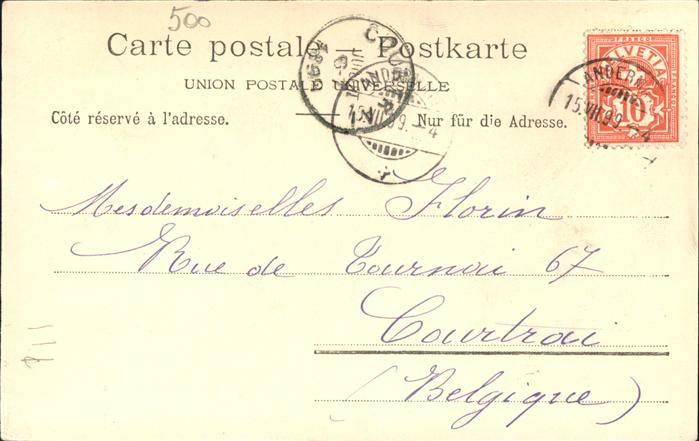 500
Carte postale — Postkarte
UNION POSTALE UNIVERSELLE
Côté réservé à l'adresse.
Nur für die Adresse.
FRANCO
HELVETIA
10
ANDERM
15.VII.99.-4
15.VII.99.-4
1899
Mesdemoiselles Florin
Rue de Tournai 67
Courtrai
(Belgique)